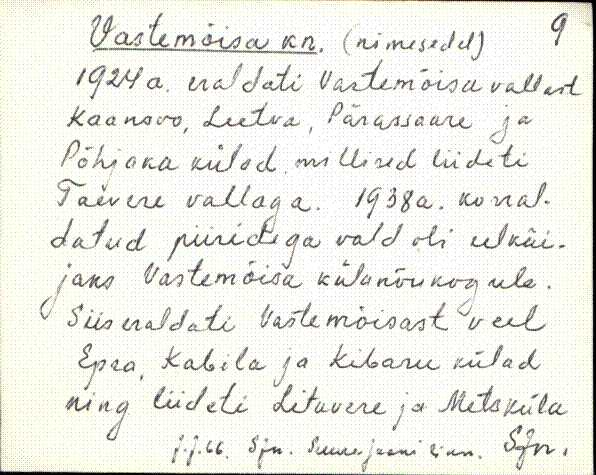 9
Vastemõisa kn. (nimesedel)
1924 a. eraldati Vastemõisa vallast
Kaansoo, Leetva, Pärassaare ja
Põhjaka külad, millised liideti
Taevere vallaga. 1938 a. korral-
datud piiridega vald oli eelkäi-
jaks Vastemõisa külanõukogule.
Siis eraldati Vastemõisast veel
Epra, Kabila ja Kibaru külad
ning liideti Litavere ja Metsküla
J.J. 66. Sjn. Suure-Jaani Sjn.